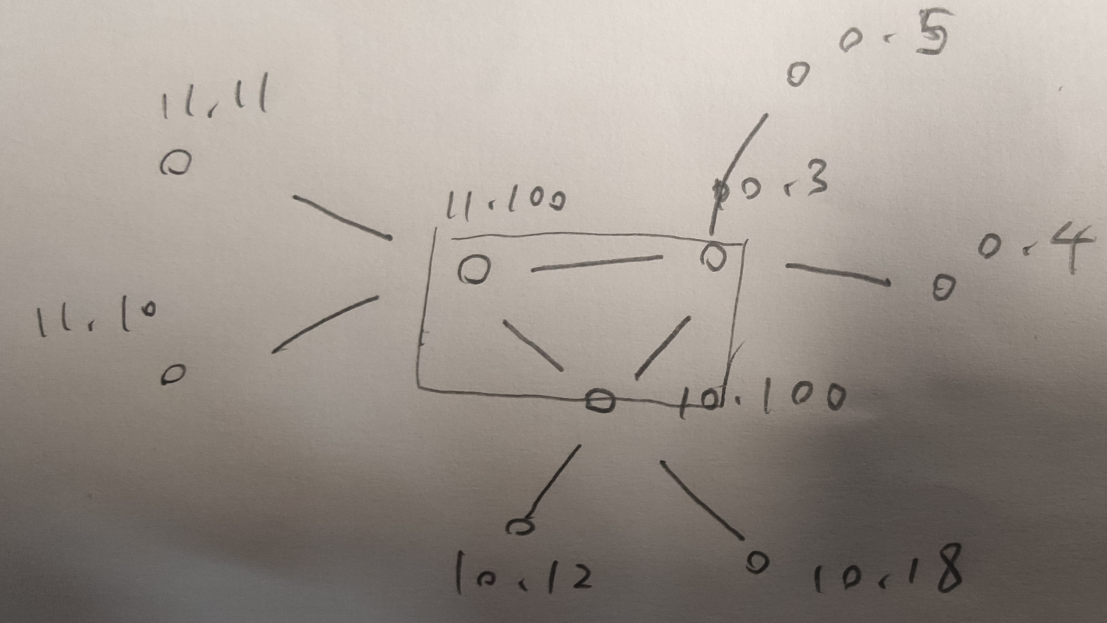 0.5
11.11
0.3
11.100
0.4
11.10
10.100
10.12
10.18